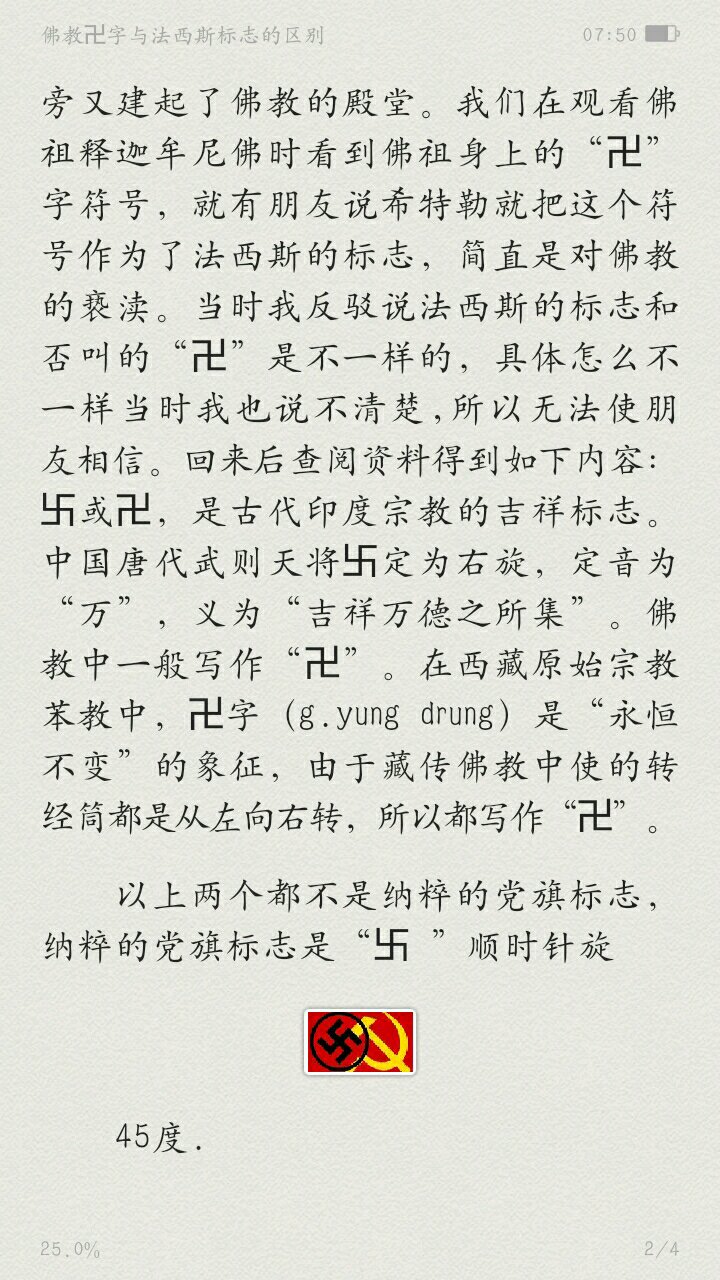 佛教卍字与法西斯标志的区别
07:50
旁又建起了佛教的殿堂。我们在观看佛
祖释迦牟尼佛时看到佛祖身上的“卍”
字符号，就有朋友说希特勒就把这个符
号作为了法西斯的标志，简直是对佛教
的亵渎。当时我反驳说法西斯的标志和
否叫的“卍”是不一样的，具体怎么不
一样当时我也说不清楚,所以无法使朋
友相信。回来后查阅资料得到如下内容：
卐或卍，是古代印度宗教的吉祥标志。
中国唐代武则天将卐定为右旋，定音为
“万”，义为“吉祥万德之所集”。佛
教中一般写作“卍”。在西藏原始宗教
苯教中，卍字（g.yung drung）是“永恒
不变”的象征，由于藏传佛教中使的转
经筒都是从左向右转，所以都写作“卍”。
以上两个都不是纳粹的党旗标志，
纳粹的党旗标志是“卐 ”顺时针旋
45度.
25.0%
2/4